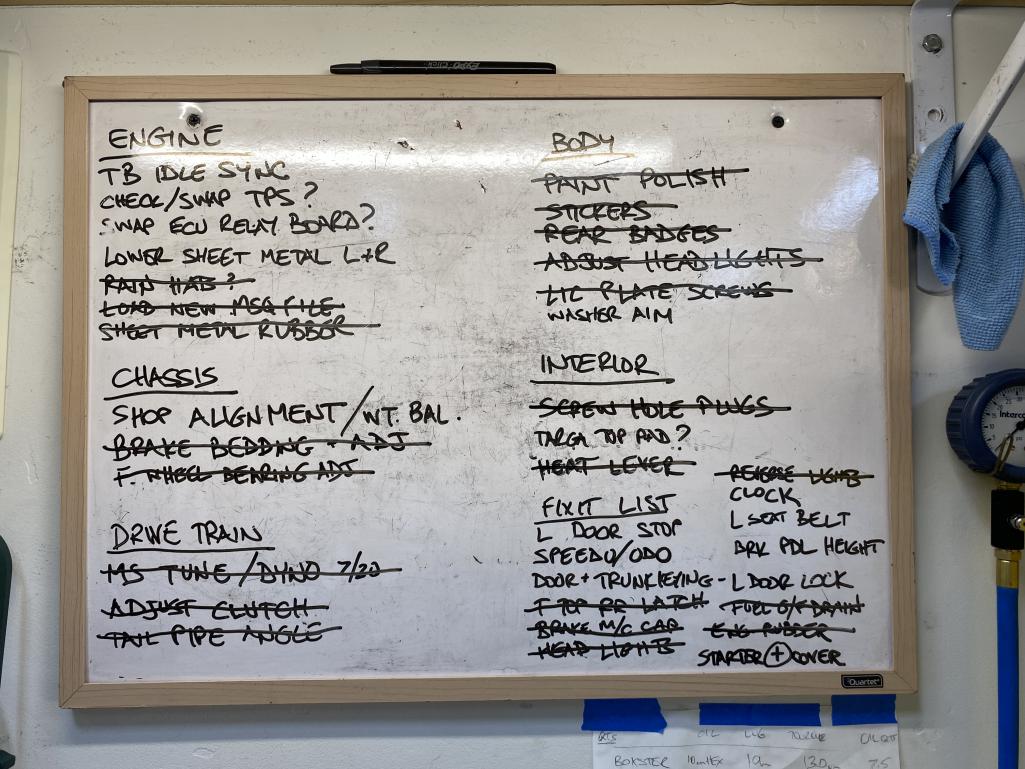 EXPO Click
ENGINE
TB IDLE SYNC
CHECK/SWAP TPS?
SWAP ECU RELAY BOARD?
LOWER SHEET METAL L+R
RAIN HATS?
LOAD NEW MSQ FILE
SHEET METAL RUBBER
CHASSIS
SHOP ALIGNMENT/WT. BAL.
BRAKE BEDDING + ADJ
F. WHEEL BEARING ADJ
DRIVE TRAIN
MS TUNE/DYNO 7/30
ADJUST CLUTCH
TAIL PIPE ANGLE
BODY
PAINT POLISH
STICKERS
REAR BADGES
ADJUST HEADLIGHTS
LIC PLATE SCREWS
WASHER AIM
INTERIOR
SCREW HOLE PLUGS
TARGA TOP PAD?
HEAT LEVER
FIXIT LIST
L DOOR STOP
SPEEDO/ODO
DOOR + TRUNK KEYING - L DOOR LOCK
F TOP RR LATCH
BRAKE M/C CAP
HEAD LIGHTS
REVERSE LIGHTS
CLOCK
L SEAT BELT
BRK PDL HEIGHT
FUEL O/F DRAIN
ENG RUBBER
STARTER + COVER
Quartet
OIL LUG TORQUE
BOXSTER 10mm HEX 19m 130
7.5